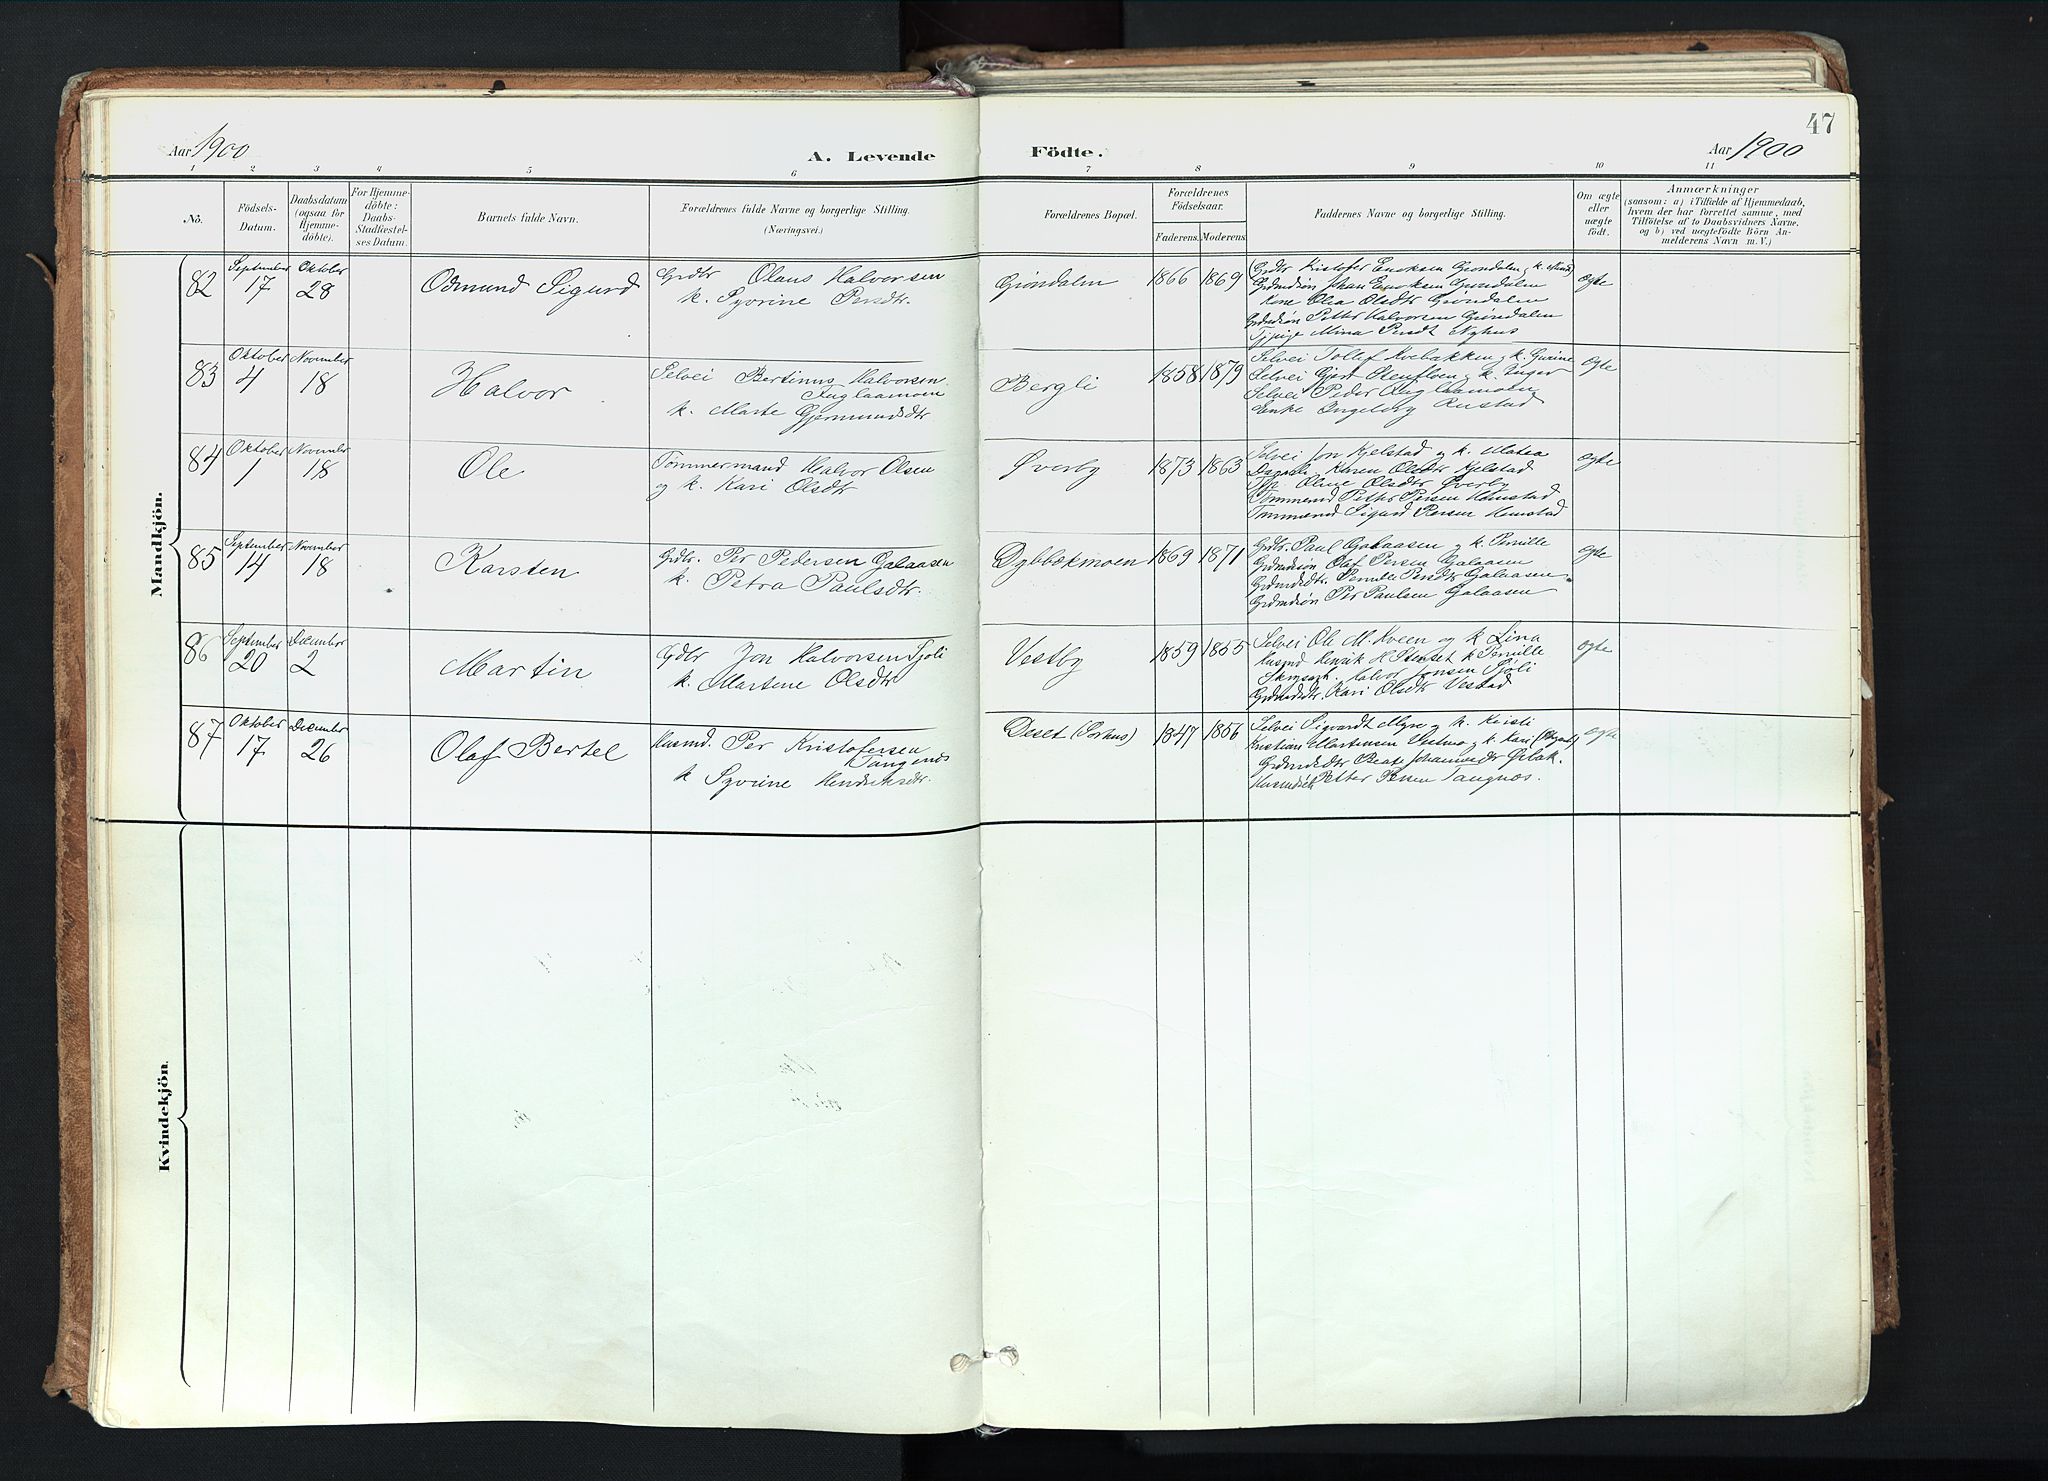 47
Aar 1900
A. Levende Födte.
Aar 1900
1 2 3 4 5 6 7 8 9 10 11
No.
Födsels-Datum.
Daabsdatum (ogsaa for Hjemmedöbte).
For Hjemmedöbte: Daabs-Stadfæstelses Datum.
Barnets fulde Navn.
Forældrenes fulde Navne og borgerlige Stilling.
(Næringsvei.)
Forældrenes Bopæl.
Forældrenes Födselsaar.
Faderens. Moderens.
Faddernes Navne og borgerlige Stilling.
Om ægte eller uægte födt.
Anmærkninger
(saasom: a) i Tilfælde af Hjemmedaab, hvem der har forrettet samme, med Tilföielse af to Daabsvidners Navne. og b) ved uægtefödte Börn Anmelderens Navn m. V.)
Mandkjön.
82
September 17
Oktober 28
Odmund Sigurd
Grdbr Olaus Halvorsen
k. Syvrine Persdtr.
Grøndalen
1866 1869
Grdbr Kristofer Ericksen Grøndalen og k.
Grdmdsøn Johan Ericksen Grøndalen
Kone Olea Olsdtr Grøndalen
Grdmdsøn Petter Halvorsen Grøndalen
Tjpige Mina Persdt Nyhus
ægte
83
Oktober 4
November 18
Halvor
Selvei Bertinus Halvorsen
Fuglaamoen
k. Marte Gjermundsdtr
Bergli
1858 1879
Selvei Tollef Kvebakken og k. Gurine
Selvei Gjert Stenfloen og k. Inger
Selvei Peder Fuglaamoen
Enke Ingeborg Rustad
ægte
84
Oktober 1
November 18
Ole
Tømmermand Halvor Olsen
og k. Kari Olsdtr
Øverby
1873 1863
Selvei Jon Kjelstad og k. Matea
Karen Olsdtr Kjelstad
Olsdtr Øverby
Tømmermd Petter Persen Hemstad
Tømmermd Sigurd Persen Hemstad
ægte
85
September 14
November 18
Karsten
Grdbr. Per Pedersen Galaasen
k. Petra Paulsdtr.
Dybbækmoen
1869 1871
Grdbr. Paul Galaasen og k. Pernille
Grdmdsøn Olaf Persen Galaasen
Grdmdsdtr. Pernille Persdtr Galaasen
Grdmdsøn Per Paulsen Galaasen
ægte
86
September 20
December 2
Martin
Grdbr Jon Halvorsen Sjøli
k. Martene Olsdtr
Vestby
1859 1855
Selvei Ole M. Kveen og k Lina
Husmd Henrik H Stenset k Pernille
Halvor Jonsen Sjøli
Grdmdsdtr. Kari Olsdtr Vestad
ægte
87
Oktober 17
December 26
Olaf Bertel
Husmd. Per Kristofersen
Tangenæs
k Syvrine Hendriksdtr.
Deset (Sorhus)
1847 1856
Selvei Sigvardt Myre og k. Kristi
Kristian Martinsen og k. Kari
Grdmdsdtr Beate Johannesdtr
Husmdsøn Petter Persen Tangnæs.
ægte
Kvindekjön.